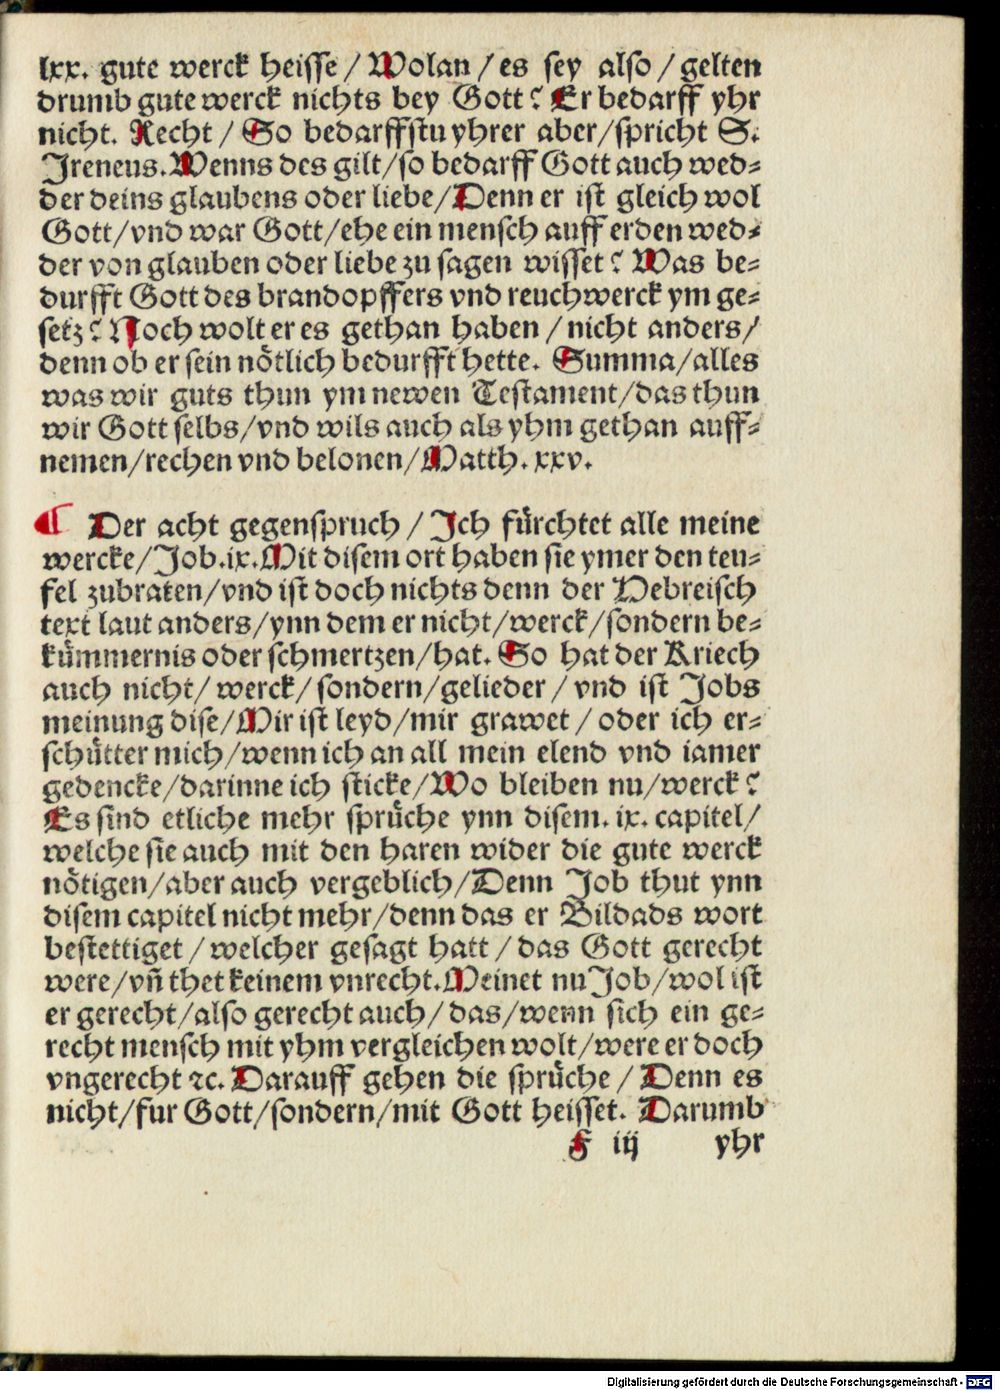 lxx. gute werck heisse / Wolan / es sey also / gelten
drumb gute werck nichts bey Gott? Er bedarff yhr
nicht. Recht / So bedarffstu yhrer aber/spricht S.
Ireneus. Wenns des gilt/so bedarff Gott auch wed⸗
der deins glaubens oder liebe/Denn er ist gleich wol
Gott/vnd war Gott/ehe ein mensch auff erden wed⸗
der von glauben oder liebe zu sagen wisset? Was be⸗
durfft Gott des brandopffers vnd reuchwerck ym ge⸗
setz? Noch wolt er es gethan haben / nicht anders/
denn ob er sein nötlich bedurfft hette. Summa/alles
was wir guts thun ym newen Testament/das thun
wir Gott selbs/vnd wils auch als yhm gethan auff⸗
nemen/rechen vnd belonen/Matth. xxv.
¶ Der acht gegenspruch / Ich fürchtet alle meine
wercke/Job.ix. Mit disem ort haben sie ymer den teu⸗
fel zubraten/vnd ist doch nichts denn der Hebreisch
text laut anders/ynn dem er nicht/werck/sondern be⸗
kümmernis oder schmertzen/hat. So hat der Kriech
auch nicht/ werck/ sondern/gelieder / vnd ist Jobs
meinung dise/Mir ist leyd/mir grawet / oder ich er⸗
schütter mich/wenn ich an all mein elend vnd iamer
gedencke/darinne ich sticke/Wo bleiben nu/werck?
Es sind etliche mehr sprüche ynn disem. ix. capitel/
welche sie auch mit den haren wider die gute werck
nötigen/aber auch vergeblich/Denn Job thut ynn
disem capitel nicht mehr/denn das er Bildads wort
bestettiget / welcher gesagt hatt / das Gott gerecht
were/vñ thet keinem vnrecht. Meinet nu Job/wol ist
er gerecht/also gerecht auch/ das/wenn sich ein ge⸗
recht mensch mit yhm vergleichen wolt/were er doch
vngerecht ꝛc. Darauff gehen die sprüche / Denn es
nicht/fur Gott/sondern/mit Gott heisset. Darumb
F iij yhr
Digitalisierung gefördert durch die Deutsche Forschungsgemeinschaft - DFG